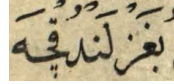 بغزلندقجه